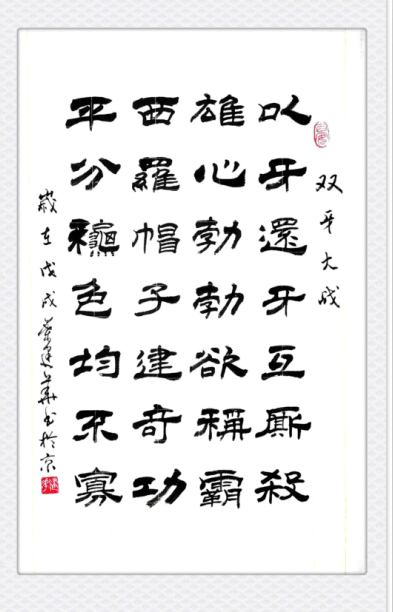 双牙大战
以牙還牙互厮殺
雄心勃勃欲稱霸
西羅帽子建奇功
平分龝色均不寡
嵗在戊戌建华书於京